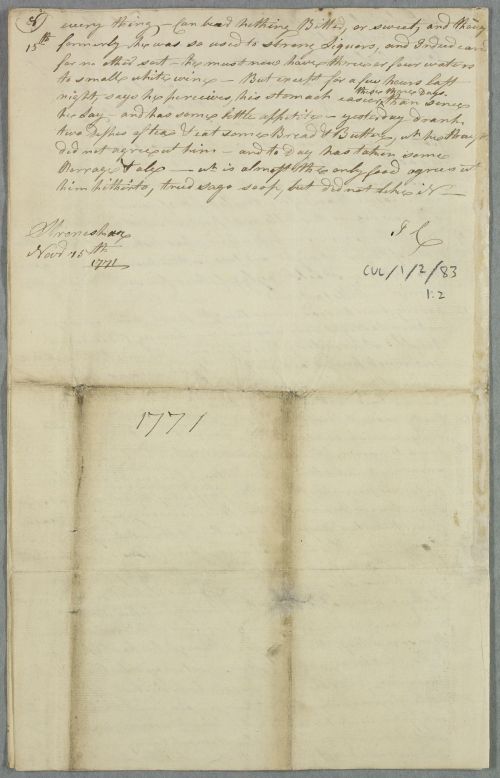 every thing - Can bear nothing Bitter, or sweet, and though
15th formerly he was so used to strong Liquors, and Indeed card
for no other sort - he must now have three or four waters
to small white wine - But except for a few hours last
these three days
night, says he perceives, his stomach easier than since
he day - and has some little appetite - yesterday drank
two Dishes of tea & eat some Bread & Butter, wh he thought
did not agree wt him - and to Day has taken some
Porrage & ale - wh is almost the only food agrees wt
him hitherto, tried sago soop, but did not like it -
Novr 15th
1771
J C
CUL/1/2/83
1:2
1771